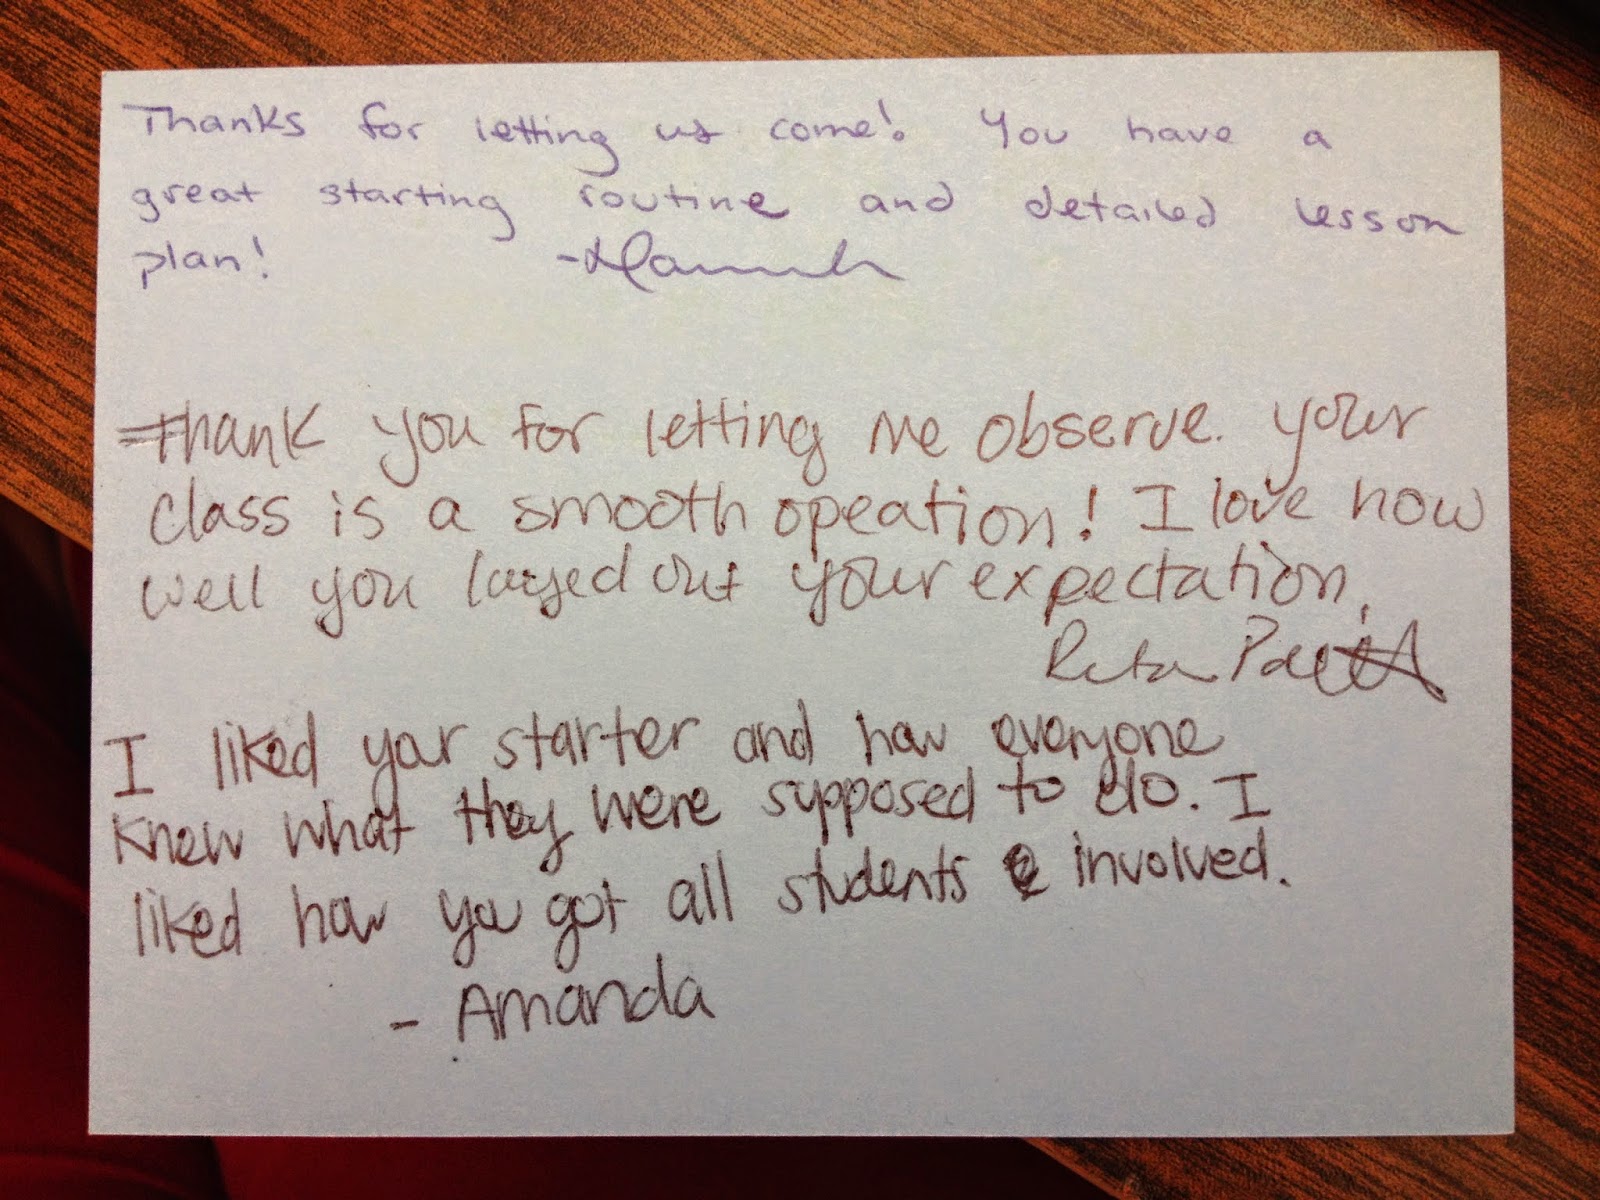 Thanks for letting us come! You have a
great starting routine and detailed lesson
plan! -Hannah
Thank you for letting me observe. Your
class is a smooth opeation! I love how
well you layed out your expectation.
I liked your starter and how everyone
knew what they were supposed to do. I
liked how you got all students involved.
- Amanda